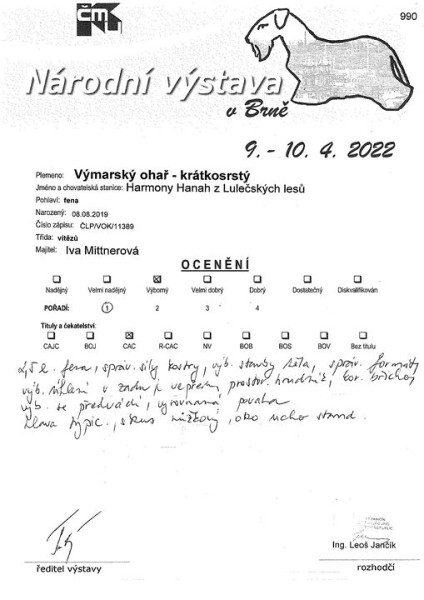 ČMKU
990
Národní výstava
v Brně
9. - 10. 4. 2022
Plemeno: Výmarský ohař - krátkosrstý
Jméno a chovatelská stanice: Harmony Hanah z Lulečských lesů
Pohlaví: fena
Narozený: 08.08.2019
Číslo zápisu: ČLP/VOK/11389
Třída: vítězů
Majitel: Iva Mittnerová
OCENĚNÍ
Nadějný Velmi nadějný Výborný Velmi dobrý Dobrý Dostatečný Diskvalifikován
POŘADÍ: 1 2 3 4
Tituly a čekatelství:
CAJC BOJ CAC R-CAC NV BOB BOS BOV Bez titulu
2,5 l. fena, správ. síly kostry, výb. stavby těla, správ. formáty
výb. úhlení v zadu i vepředu, prostor. hrudník, kor. břichový
výb. se předvádí, vyrovnaná povaha
hlava typic., skus nůžkový, oko ucho stand.
Ing. Leoš Jančík
ředitel výstavy rozhodčí